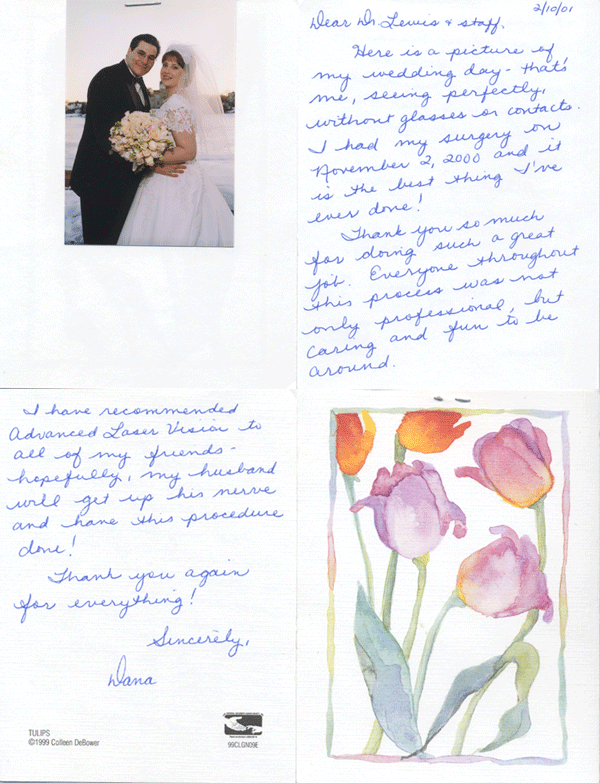 2/10/01
Dear Dr. Lewis & staff.
Here is a picture of
my wedding day - that's
me, seeing perfectly,
without glasses or contacts.
I had my surgery on
November 2, 2000 and it
is the best thing I've
ever done!
Thank you so much
for doing such a great
job. Everyone throughout
this process was not
only professional, but
caring and fun to be
around.
I have recommended
Advanced Laser Vision to
all of my friends -
hopefully, my husband
will get up his nerve
and have this procedure
done!
Thank you again
for everything!
Sincerely,
Dana
TULIPS
©1999 Colleen DeBower
99CLGN09E